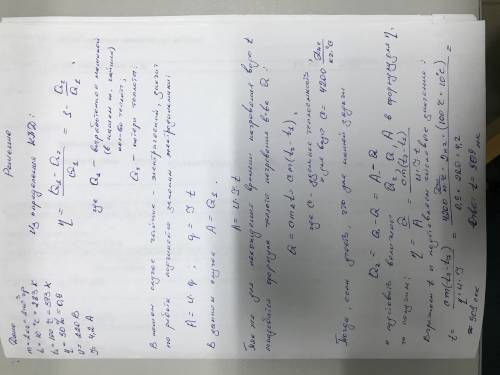 Дано
m = 2кг = 2·10³ гр
t₁ = 10°C = 283 K
t₂ = 100°C = 373 K
η = 90% = 0,9
U = 220 В
I = 4,2 А
Решение
Из определения КПД:
η = (Q₂ - Q₁)/Q₂ = 1 - Q₂/Q₁,
где Q₂ - выработанное машиной
(в нашем м. чайник)
кол-во теплоты,
Q₁ - потери теплоты.
В нашем случае чайник - электрический, значит
его работа подчинена законам электродинамики:
A = U·q; q = I t
В данном случае A = Q₁.
A = U·I t
Так же для нахождения времени нагревания воды t
потребуется формула теплого нагревания воды Q:
Q = cm∆t = cm(t₂ - t₁),
где c - удельная теплоемкость,
для воды c = 4200 Дж/кг·°C
Тогда, если учесть, что для нашей задачи
Q₂ = Q₁ - Q = A - Q
и подставить величины Q₂, Q₁, A в формулу для η,
то получим: η = Q/A = cm(t₂ - t₁)/U·I t
Выразим t и подставим числовые значения:
t = cm(t₂ - t₁)/η·U·I = 4200 Дж/кг·°C · 2кг · (100°C - 10°C)/0,9·220·4,2 =
≈ 909 с
Ответ: t = 909 с